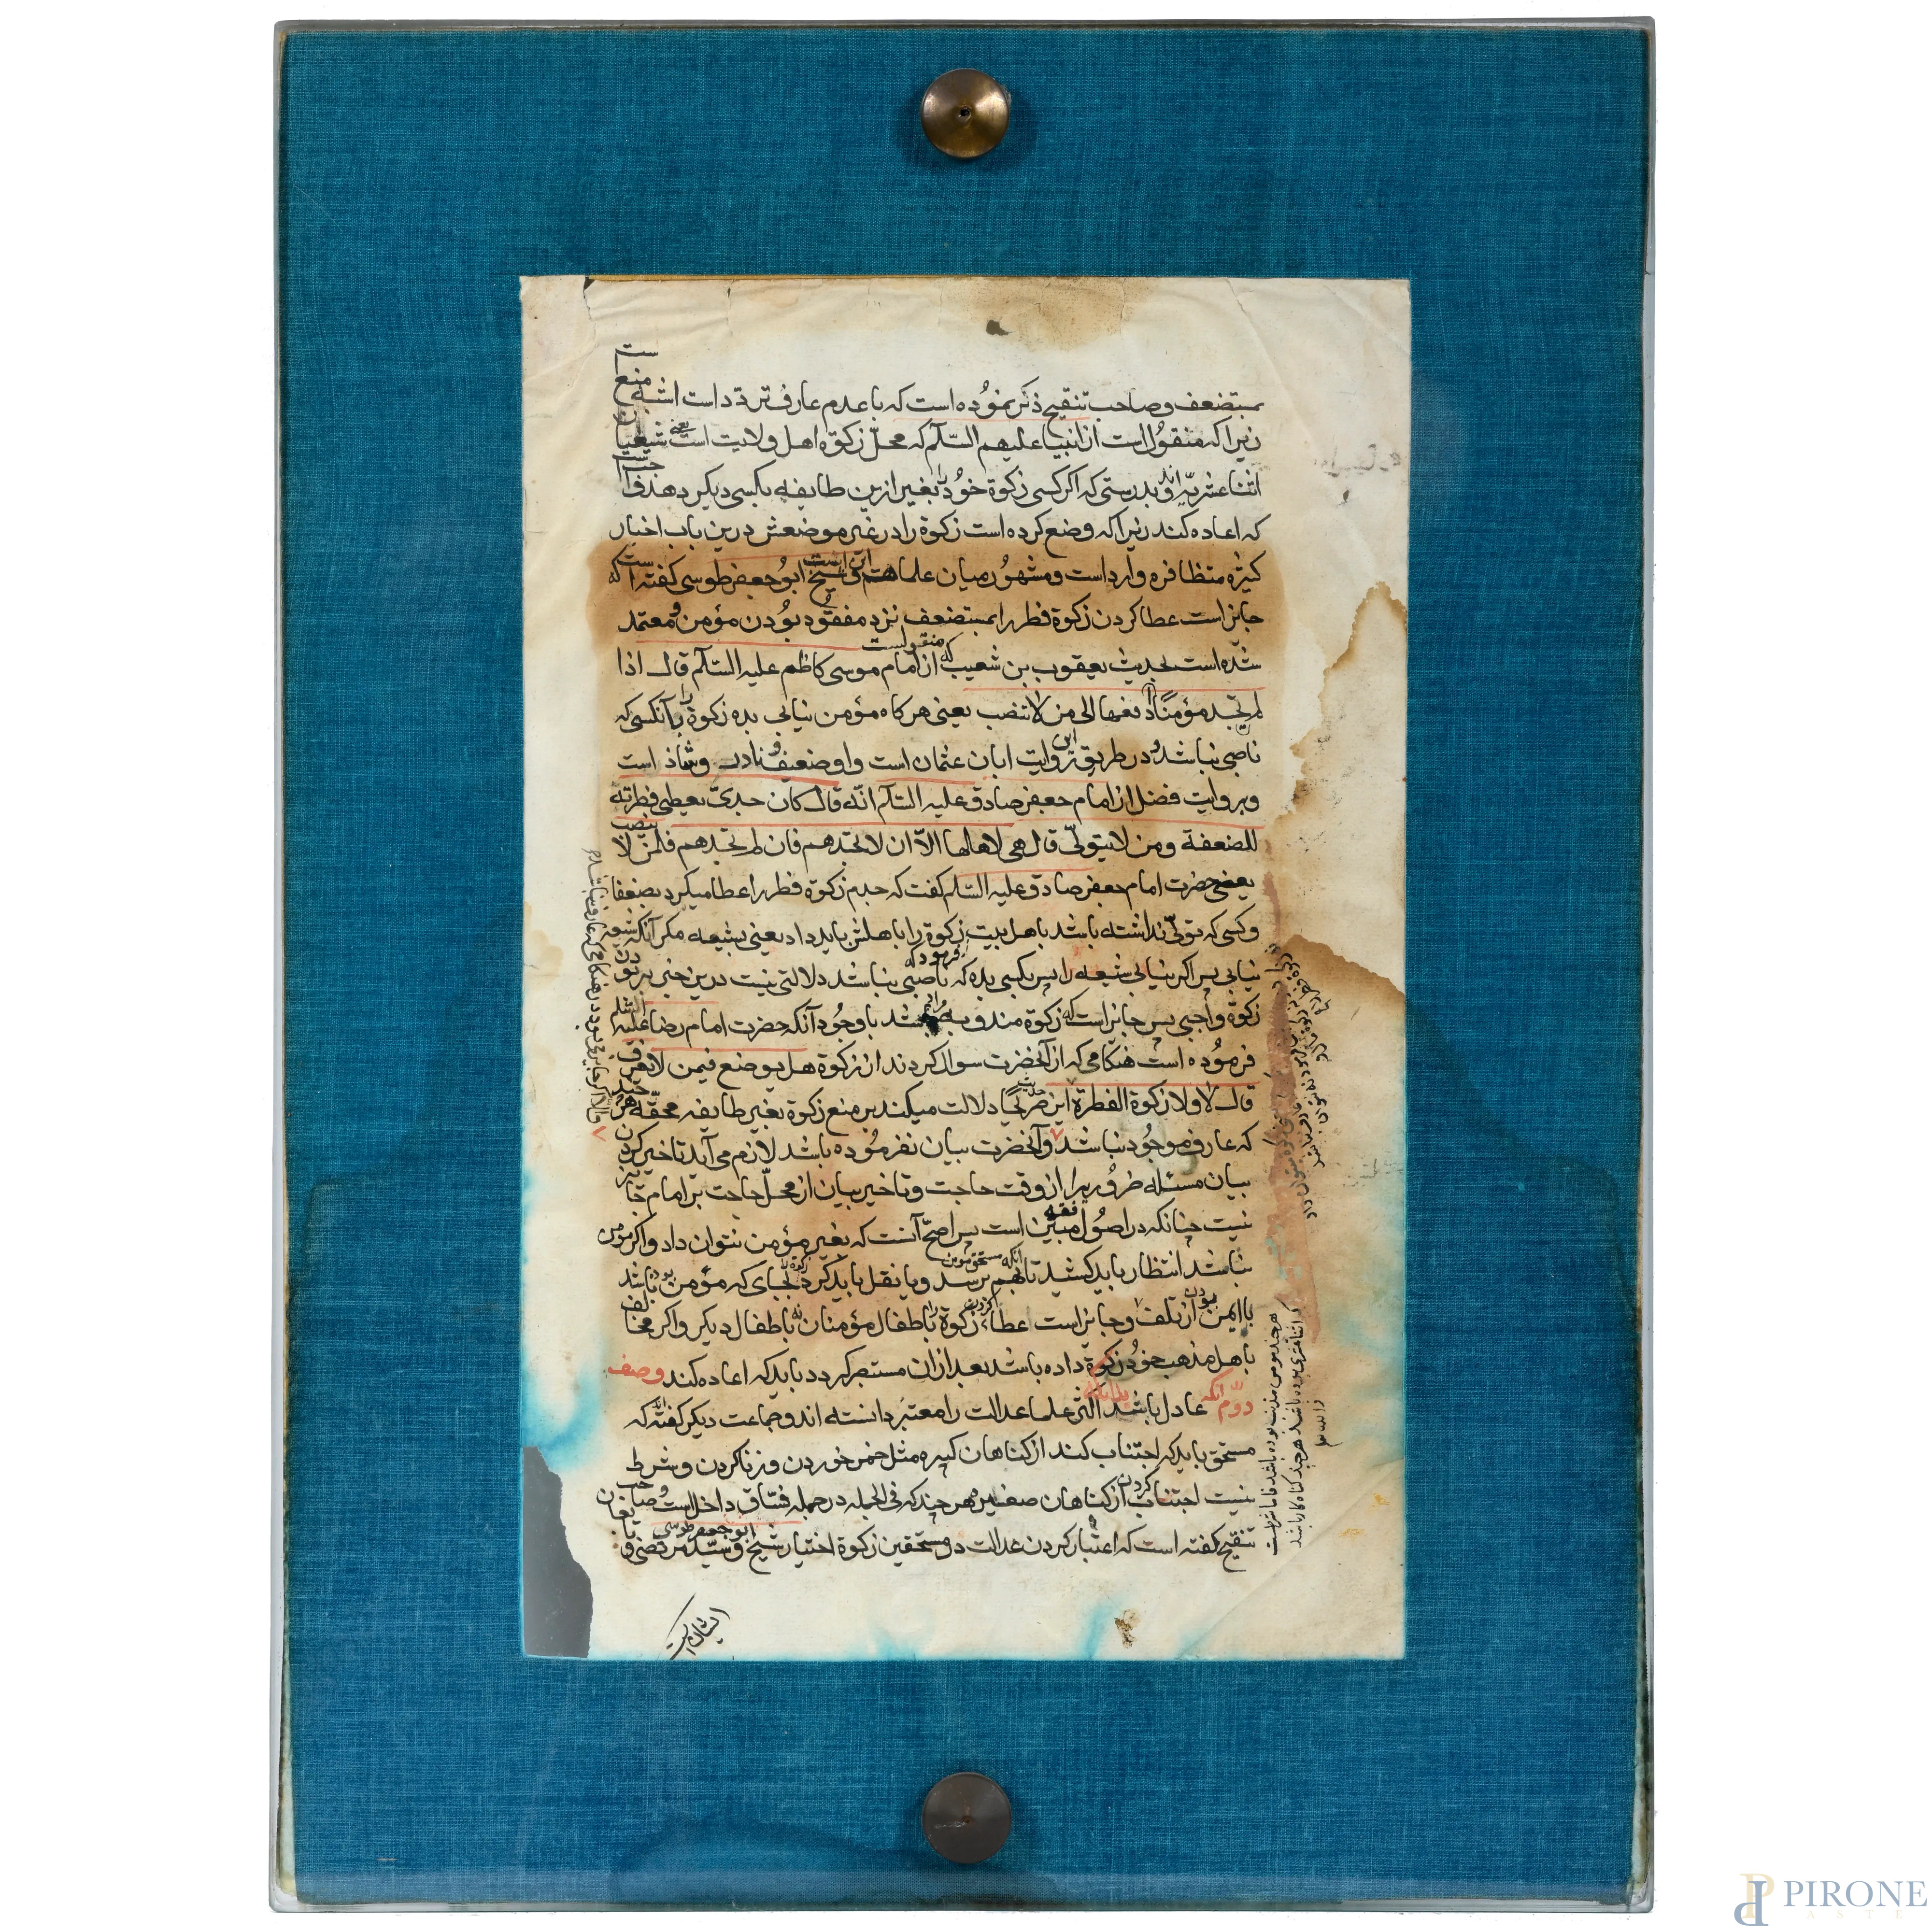 بمستضعف و صاحب تنقیح ذکر نموده است که با عدم عارف تردّد است اشبه منع است
زیرا که منقول است از انبیا علیهم السّلام که محلّ زکوة اهل ولایت است یعنی شیعیان
اثنا عشریّه اند و بدرستی که اکر کسی زکوة خود را بغیر ازین طایفه بکسی دیکر دهد واجبست
که اعاده کند زیرا که وضع کرده است زکوة را در غیر موضعش درین باب اخبار
کثیره متظافره وارد است و مشهور میان علما هم این است و شیخ ابو جعفر طوسی کفته است که
جایز است عطا کردن زکوة فطر را بمستضعف نزد مفقود بودن مؤمن و معتمد
شده است بحدیث یعقوب بن شعیب که منقولست از امام موسی کاظم علیه السّلام قال اذا
لم تجد مؤمنًا ادفعها الی من لا تنصب یعنی هر کاه مؤمن نیابی بده زکوة را بآنکسی که
ناصبی نباشد و در طریق این روایت ابان عثمان است و او ضعیف و نادر و شاذ است
و بروایت فضل از امام جعفر صادق علیه السّلام انّه قال کان جدّی یعطی فطرته
للضعفة و من لا یتولّی قال هی لاهلها الّا ان لا تجدهم فان لم تجدهم فلمن لا ینصب
یعنی حضرت امام جعفر صادق علیه السّلم کفت که جدم زکوة فطر را عطا میکرد بضعفا
و کسی که تولّی نداشته باشد باهل بیت فرمود که زکوة را باهلش باید داد یعنی بشیعه مکر آنکه شیعه
نیابی پس اکر نیابی شیعه را پس بکسی بده که ناصبی نباشد دلالتی نیست درین خبر بر بودن
زکوة واجبی پس جایز است که زکوة مندوبه مراد باشد با وجود آنکه حضرت امام رضا علیه السّلم
فرموده است هنکامی که از آنحضرت سوال کردند از زکوة هل یوضع فیمن لا یعرف
قال لا ولا زکوة الفطرة این حدیث صریحًا دلالت میکند بر منع زکوة بغیر طایفه محقّه هر چند
که عارف موجود نباشد و آنحضرت بیان نفرموده باشد لازم می آید تاخیر کردن
بیان مسئله ضروریرا از وقت حاجت و تاخیر بیان از محلّ حاجت بر امام جایز
نیست چنانکه در اصول فقه مبیّن است پس اصحّ آنست که بغیر مؤمن نتوان داد و اکر مومن
نباشد انتظار باید کشید تا آنکه مستحق مومن بهم برسد و یا نقل باید کرد زکوة را بجای که مؤمن بوده باشد
با ایمن بودن از تلف و جایز است عطاء کردن زکوة را باطفال مؤمنان نه باطفال دیکر و اکر مخالف
باهل مذهب خود زکوة داده باشد بعد از ان مستبصر کردد باید که اعاده کند وصف
دوّم آنکه عادل باشد بدانکه اکثر علما عدالت را معتبر دانسته اند و جماعت دیکر کفته اند که
مستحق باید که اجتناب کند از کناهان کبیره مثل خمر خوردن و زنا کردن و شرط
نیست اجتناب کردن از کناهان صغیره هر چند که فی الجمله در جمله فسّاق داخل است و صاحب
تنقیح کفته است که اعتبار کردن عدالت در مستحقین زکوة اختیار شیخ ابو جعفر طوسی و سیّد مرتضی و
هر چند مومن مذنب بوده باشد
PIRONE
ASTE